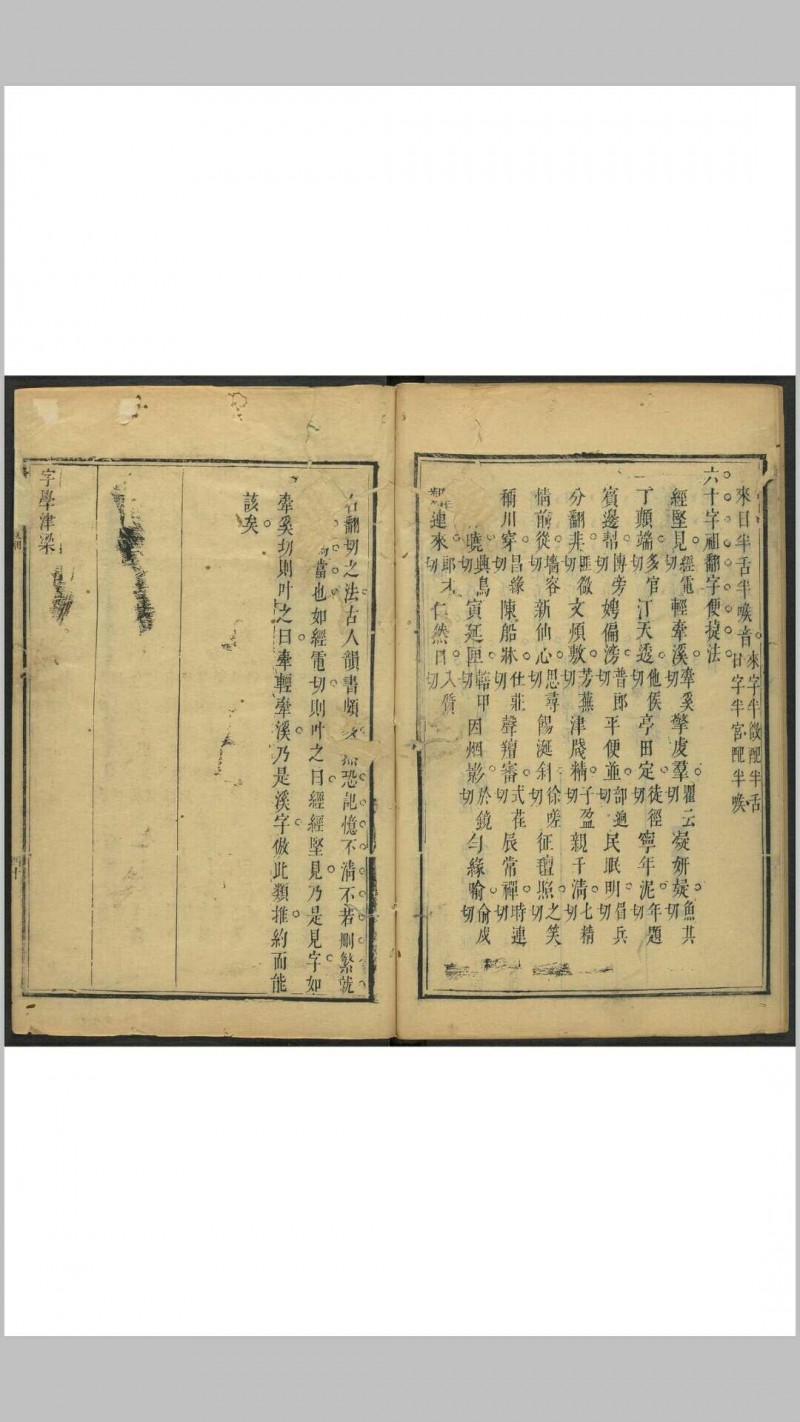 來日半舌半喉音 來字半徵配半舌 日字半宮配半喉
六十字祖翻字便捷法
經堅見經電切輕牽溪牽奚切擎虔羣瞿云切凝妍疑魚其切
丁顛端多官切汀天透他侯切亭田定徒徑切寧年泥年題切
賓邊幫博旁切娉偏滂普郎切平便並部迥切民眠明眉兵切
分翻非匪微切文煩敷芳蕪切津牋精子盈切親千清七精切
情前從墻容切新仙心思尋切餳涎斜徐嗟切征氈照之笑切
稱川穿昌緣切陳船牀仕莊切聲羶審式荏切辰常禪時連切
曉典鳥切寅延匣轄甲切因烟影於鏡切勻緣喻俞戍切
連來郎才切仁然日入質切
翻切之法古人韻書頗恐記憶不清不若刪繁就
當也如經電切則叶之曰經經堅見乃是見字如
牽奚切則叶之曰牽輕牽溪乃是溪字倣此類推約而能
該矣
字學津梁